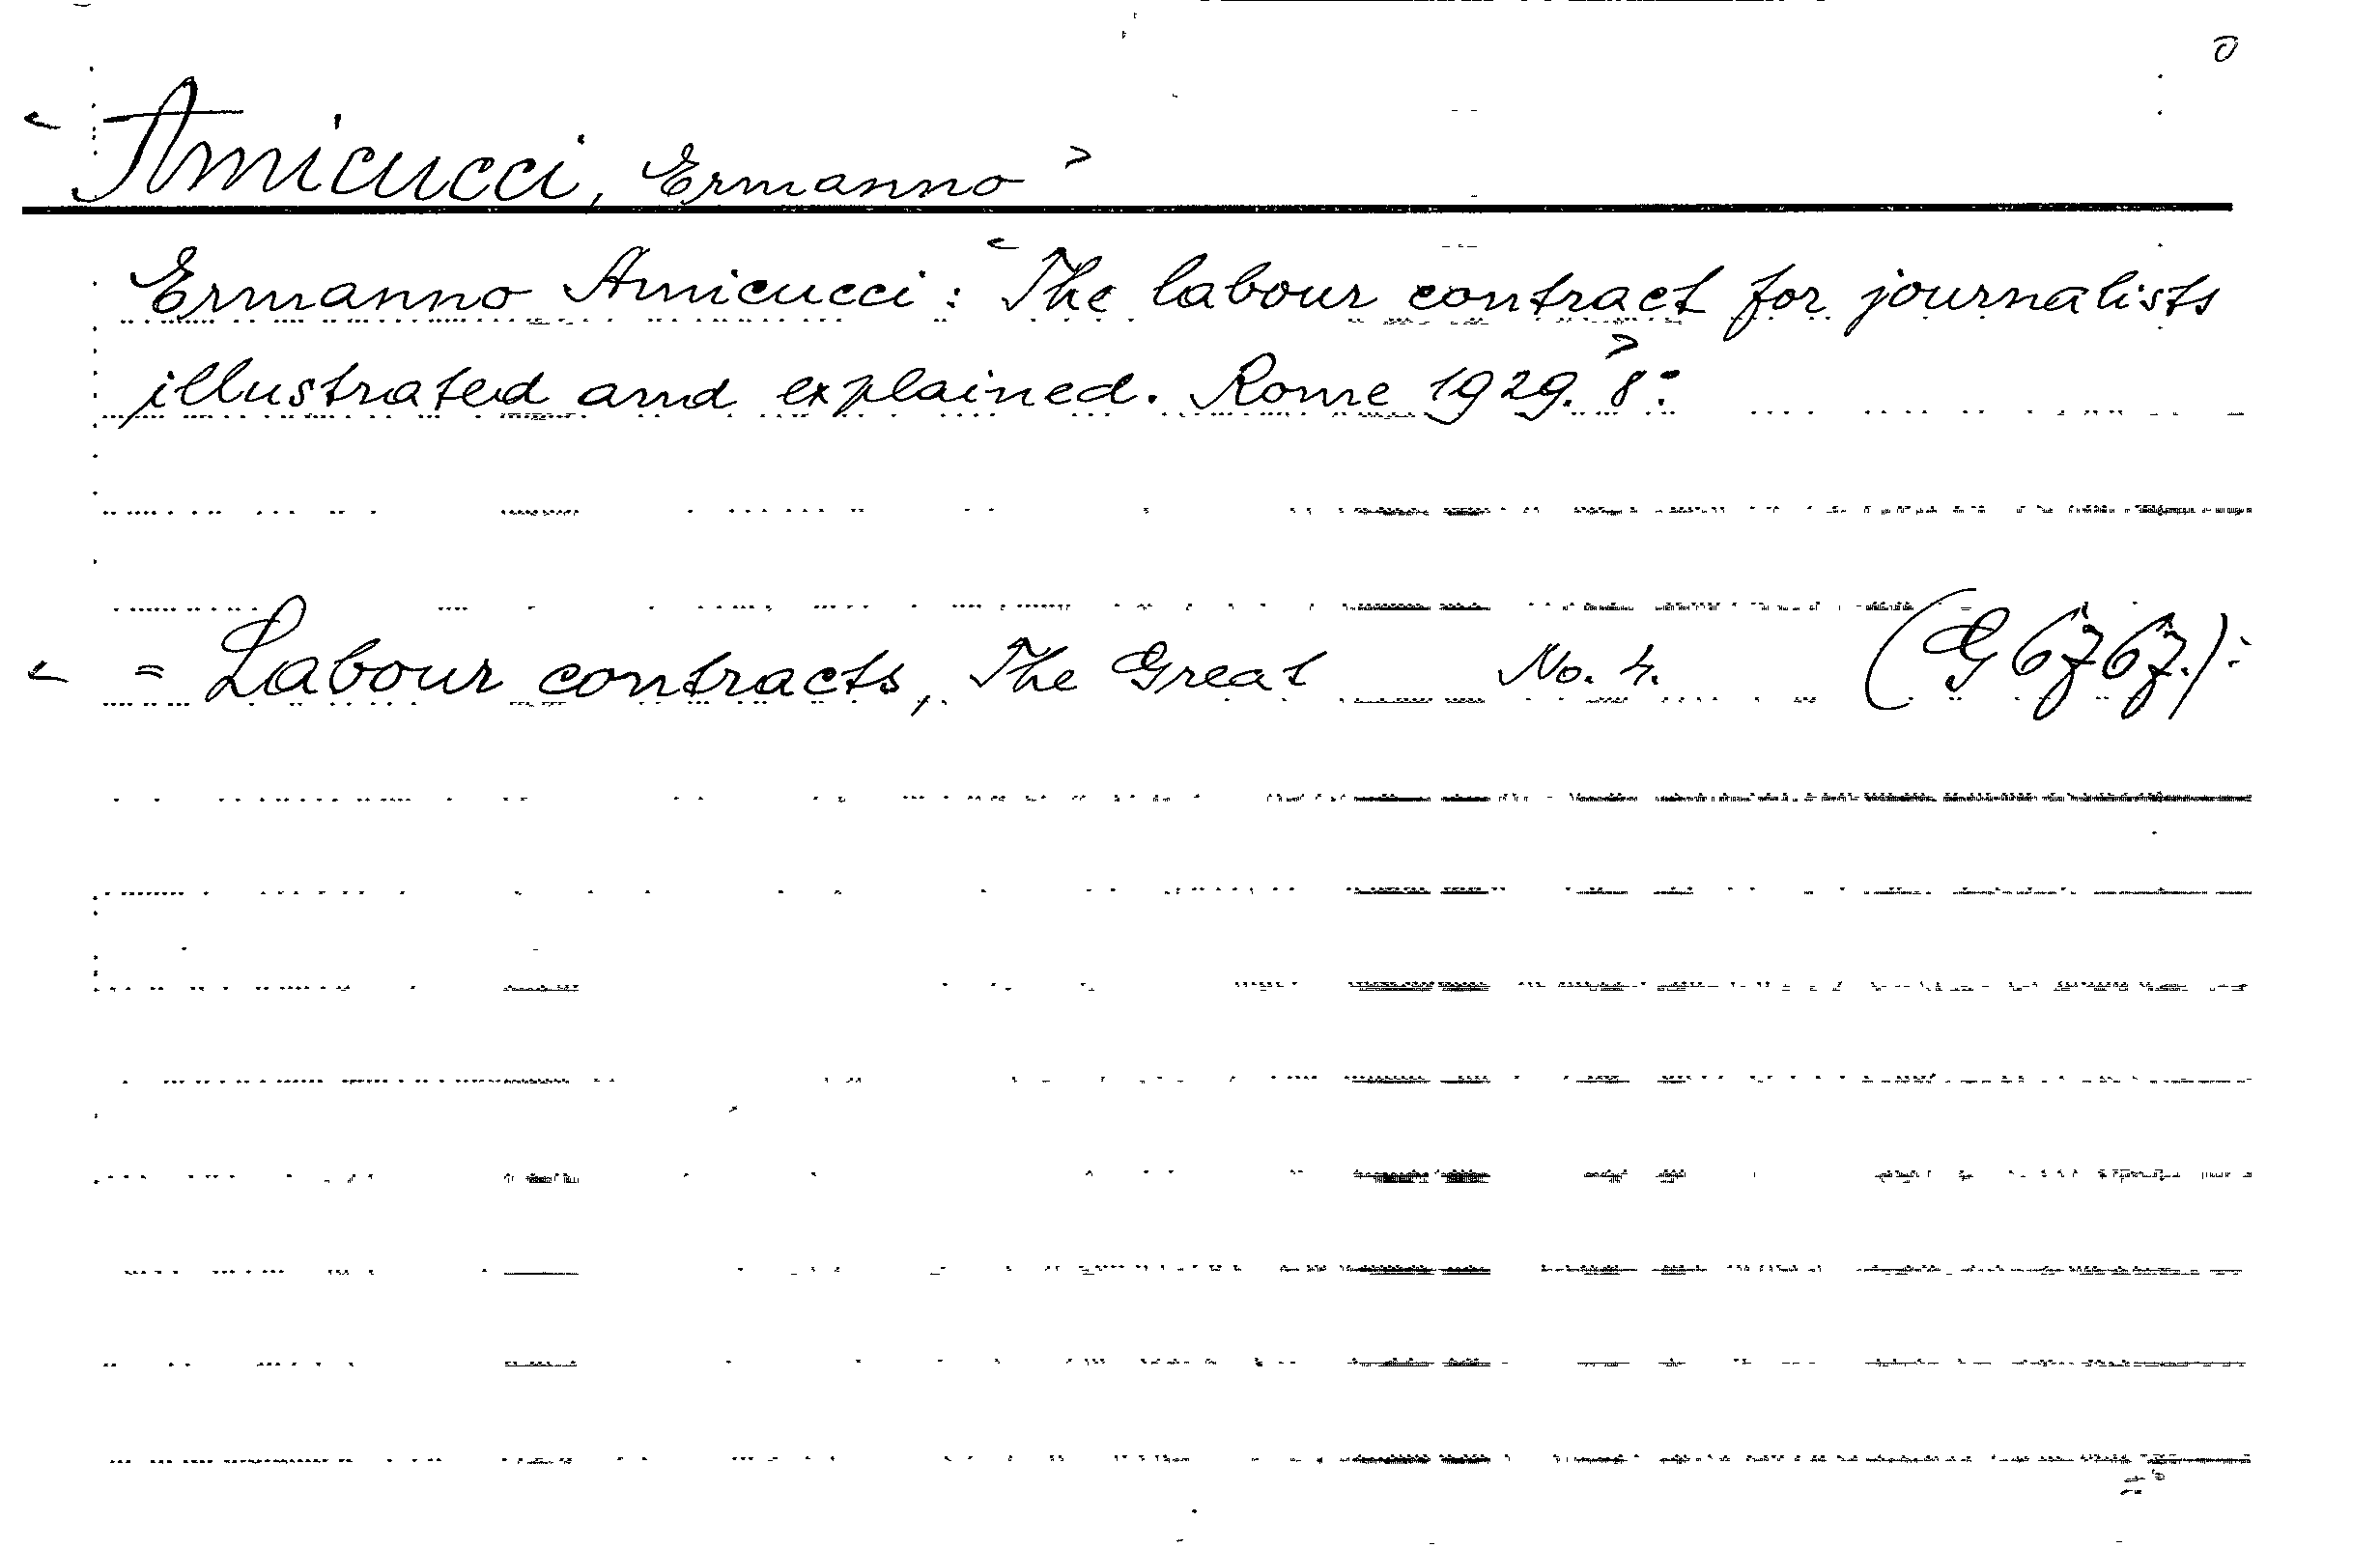 < Amicucci, Ermanno >
Ermanno Amicucci: < The labour contract for journalists
illustrated and explained. Rome 1929. > 8:
< = Labour contracts, The Great No. 4. (G 6767.):